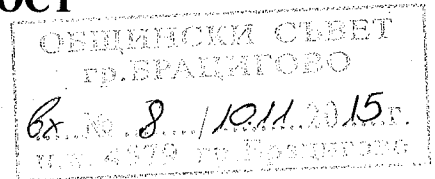 ОСТ
ОБЩИНСКИ СЪВЕТ
гр.БРАЦИГОВО
Вх.№ 8 / 10.11.2015г.
п.к. 4579 гр.Брацигово